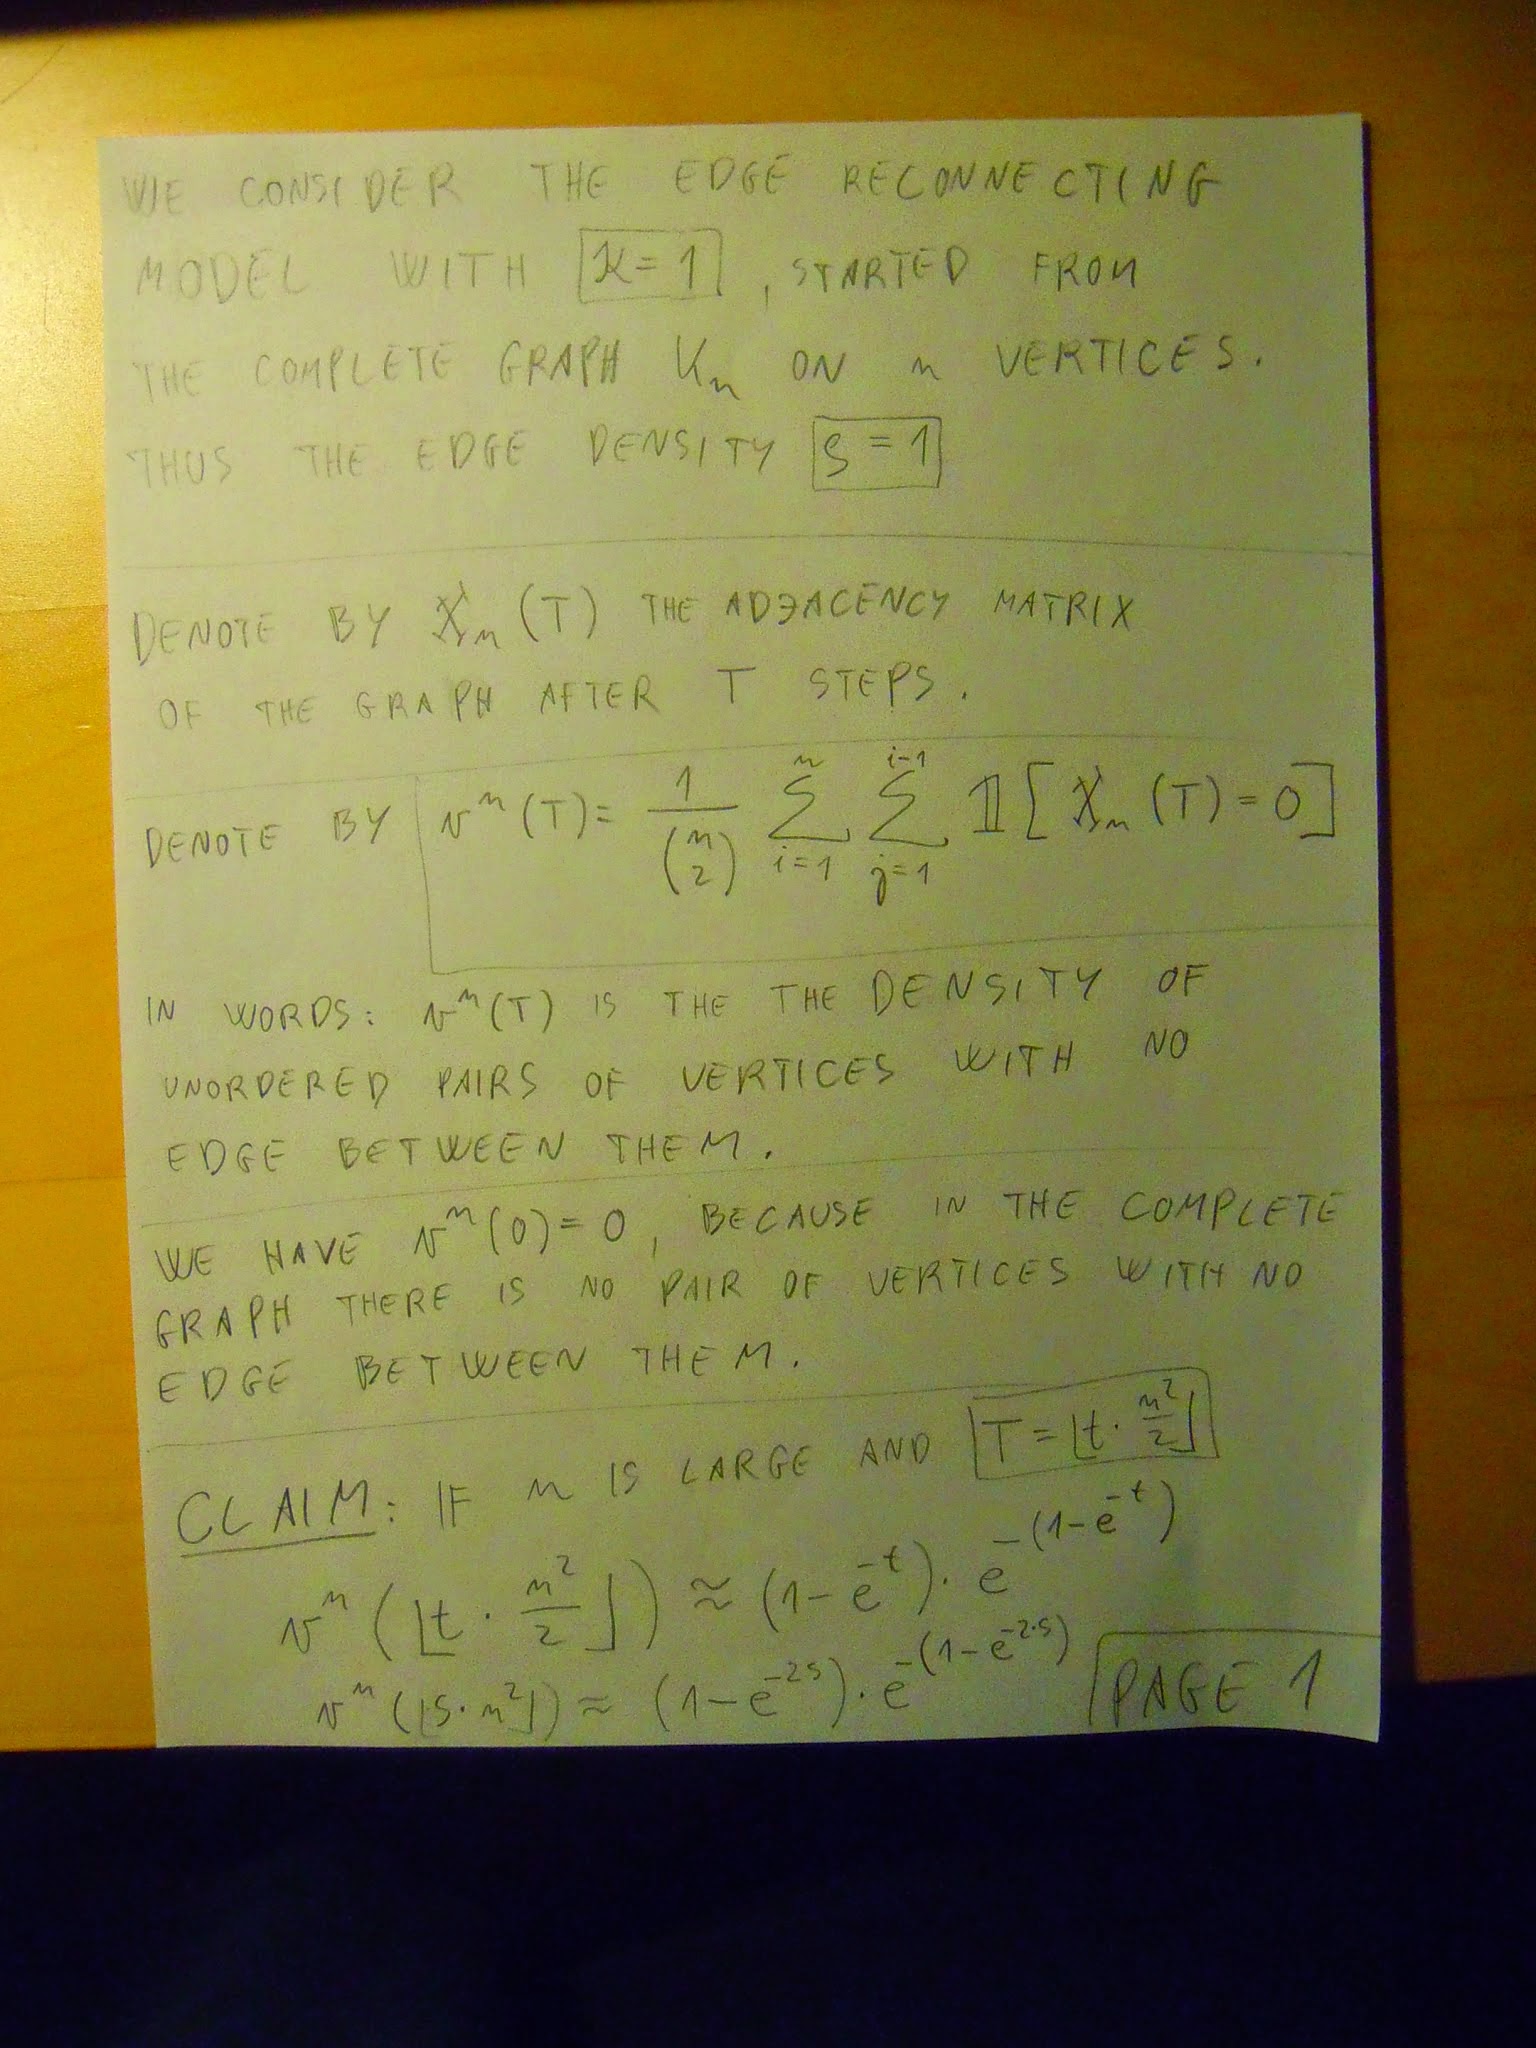 WE CONSIDER THE EDGE RECONNECTING
MODEL WITH ϰ = 1, STARTED FROM
THE COMPLETE GRAPH K_n ON n VERTICES.
THUS THE EDGE DENSITY ρ = 1
DENOTE BY X_n (T) THE ADJACENCY MATRIX
OF THE GRAPH AFTER T STEPS.
DENOTE BY v^n (T) = 1/(n 2) Σ_{i=1}^{n} Σ_{j=1}^{i-1} 𝟙[X_n (T) = 0]
IN WORDS: v^n(T) IS THE THE DENSITY OF
UNORDERED PAIRS OF VERTICES WITH NO
EDGE BETWEEN THEM.
WE HAVE v^n(0) = 0, BECAUSE IN THE COMPLETE
GRAPH THERE IS NO PAIR OF VERTICES WITH NO
EDGE BETWEEN THEM.
CLAIM: IF n IS LARGE AND T = ⌊t · n²/2⌋
v^n (⌊t · n²/2⌋) ≈ (1 - e^{-t}) · e^{-(1-e^{-t})}
v^n (⌊s · n²⌋) ≈ (1 - e^{-2s}) · e^{-(1-e^{-2·s})}
PAGE 1